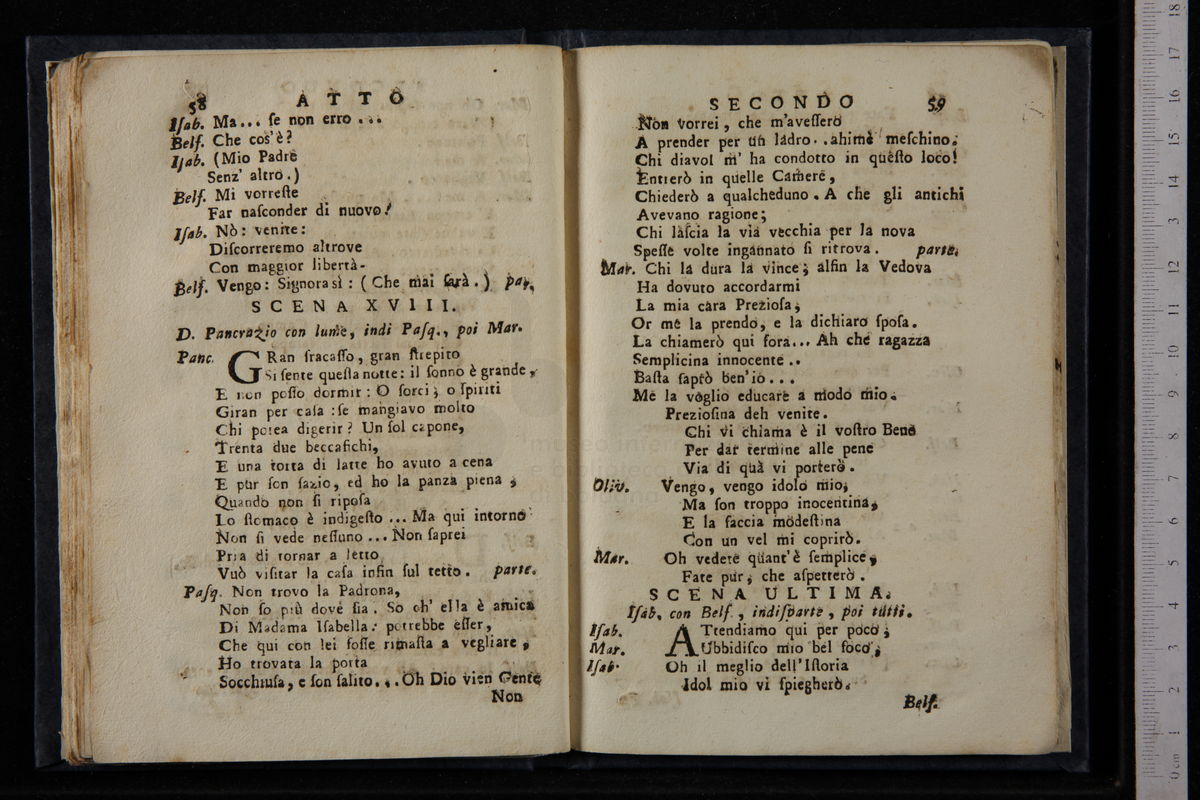 58 ATTO
Iſab. Ma... ſe non erro ...
Belſ. Che cos'è?
Iſab. (Mio Padre
Senz' altro.)
Belſ. Mi vorreſte
Far naſconder di nuovo!
Iſab. Nò: venite:
Diſcorreremo altrove
Con maggior libertà-
Belſ. Vengo: Signora sì: (Che mai ſarà.) par.
SCENA XVIII.
D. Pancrazio con lume, indi Paſq., poi Mar.
Panc. GRan fracaſſo, gran ſtrepito
Si ſente queſta notte: il ſonno è grande,
E non poſſo dormir: O ſorci; o ſpiriti
Giran per caſa: ſe mangiavo molto
Chi potea digerir? Un ſol capone,
Trenta due beccafichi,
E una torta di latte ho avuto a cena
E pur ſon ſazio, ed ho la panza piena;
Quando non ſi ripoſa
Lo ſtomaco è indigeſto ... Ma qui intorno
Non ſi vede neſſuno ... Non ſaprei
Pria di tornar a letto
Vuò viſitar la caſa infin ſul tetto. parte.
Paſq. Non trovo la Padrona,
Non ſo più dove ſia. So ch' ella è amica
Di Madama Iſabella: potrebbe eſſer,
Che qui con lei foſſe rimaſta a vegliare,
Ho trovata la porta
Socchiuſa, e ſon ſalito... Oh Dio vien Gente
Non
SECONDO 59
Non vorrei, che m'aveſſero
A prender per un ladro. .ahimè meſchino.
Chi diavol m' ha condotto in queſto loco!
Entrerò in quelle Camere,
Chiederò a qualcheduno. A che gli antichi
Avevano ragione;
Chi laſcia la via vecchia per la nova
Speſſe volte ingannato ſi ritrova. parte.
Mar. Chi la dura la vince; alfin la Vedova
Ha dovuto accordarmi
La mia cara Prezioſa;
Or me la prendo, e la dichiaro ſpoſa.
La chiamerò qui fora... Ah che ragazza
Semplicina innocente ..
Baſta ſaprò ben'io...
Me la voglio educare a modo mio.
Prezioſina deh venite.
Chi vi chiama è il voſtro Bene
Per dar termine alle pene
Via di quà vi porterò.
Oliv. Vengo, vengo idolo mio,
Ma ſon troppo inocentina,
E la faccia modeſtina
Con un vel mi coprirò.
Mar. Oh vedete quant'è ſemplice,
Fate pur, che aſpetterò.
SCENA ULTIMA.
Iſab. con Belſ., indiſparte, poi tutti.
Iſab. ATtendiamo qui per poco;
Mar. AUbbidiſco mio bel foco;
Iſab. Oh il meglio dell'Iſtoria
Idol mio vi ſpiegherò.
Belſ.